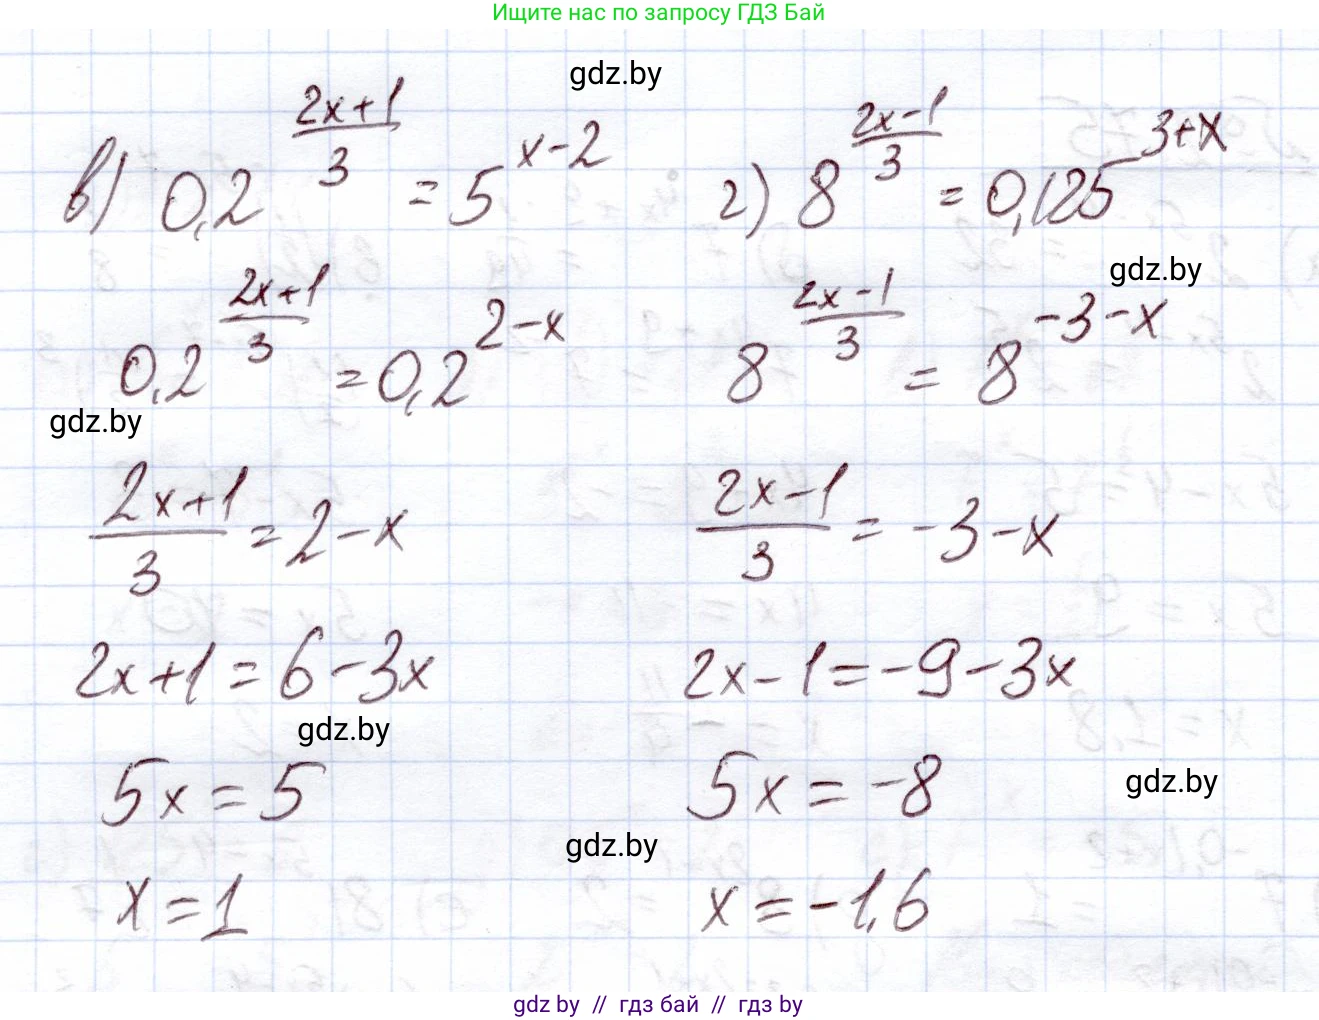 Ищите нас по запросу ГДЗ Бай
gdz.by
в) 0,2^((2x+1)/3) = 5^(x-2)
0,2^((2x+1)/3) = 0,2^(2-x)
gdz.by
(2x+1)/3 = 2-x
2x+1 = 6-3x
gdz.by
5x = 5
x = 1
г) 8^((2x-1)/3) = 0,125^(3+x)
gdz.by
8^((2x-1)/3) = 8^(-3-x)
(2x-1)/3 = -3-x
2x-1 = -9-3x
5x = -8
gdz.by
gdz.by
x = -1,6
gdz by // гдз бай // гдз by